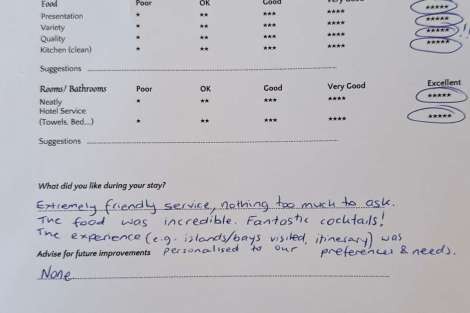 Food Poor OK Good Very Good *****
Presentation * ** *** **** *****
Variety * ** *** **** *****
Quality * ** *** **** ***** !!
Kitchen (clean) * ** *** **** *****
Suggestions
Rooms/ Bathrooms Poor OK Good Very Good Excellent
Neatly * ** *** **** *****
Hotel Service
(Towels, Bed...) * ** *** **** *****
Suggestions
What did you like during your stay?
Extremely friendly service, nothing too much to ask.
The food was incredible. Fantastic cocktails!
The experience (e.g. islands/bays visited, itinerary) was
Advise for future improvements personalised to our preferences & needs.
None